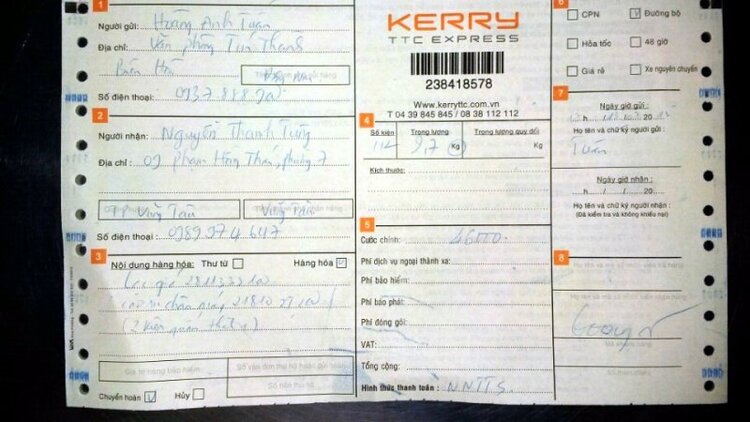 1
Người gửi: Hoàng Anh Tuấn
Địa chỉ: Văn phòng Tín Thành
Biên Hòa
Số điện thoại: 0937 888
2
Người nhận: Nguyễn Thanh Tùng
Địa chỉ: 09 Phạm Hồng Thái, phường 7
TP Vũng Tàu
Vũng Tàu
Số điện thoại: 0989 974 647
3
Nội dung hàng hóa: Thư từ Hàng hóa
cao su chân máy
(2 kiện
Giá trị hàng bảo hiểm
Số vận đơn thu hộ hoặc gửi hoàn
Số tiền thu hộ
Chuyển hoàn Hủy
KERRY
TTC EXPRESS
238418578
Www.kerryttc.com.vn
T 04 39 845 845 / 08 38 112 112
4
Số kiện Trọng lượng Trọng lượng quy đổi
9,7 Kg Kg
Kích thước:
5
Cước chính:
Phí dịch vụ ngoại thành xa:
Phí bảo hiểm:
Phí báo phát:
Phí đóng gói:
VAT:
Tổng cộng:
Hình thức thanh toán: NNTTS
6
CPN Đường bộ
Hỏa tốc 48 giờ
Giá rẻ Xe nguyên chuyến
7
Ngày giờ gửi:
h / / 20
Họ tên và chữ ký người gửi:
Tuấn
Ngày giờ nhận:
h / / 20
Họ tên và chữ ký người nhận:
(Đã kiểm tra và không khiếu nại)
8